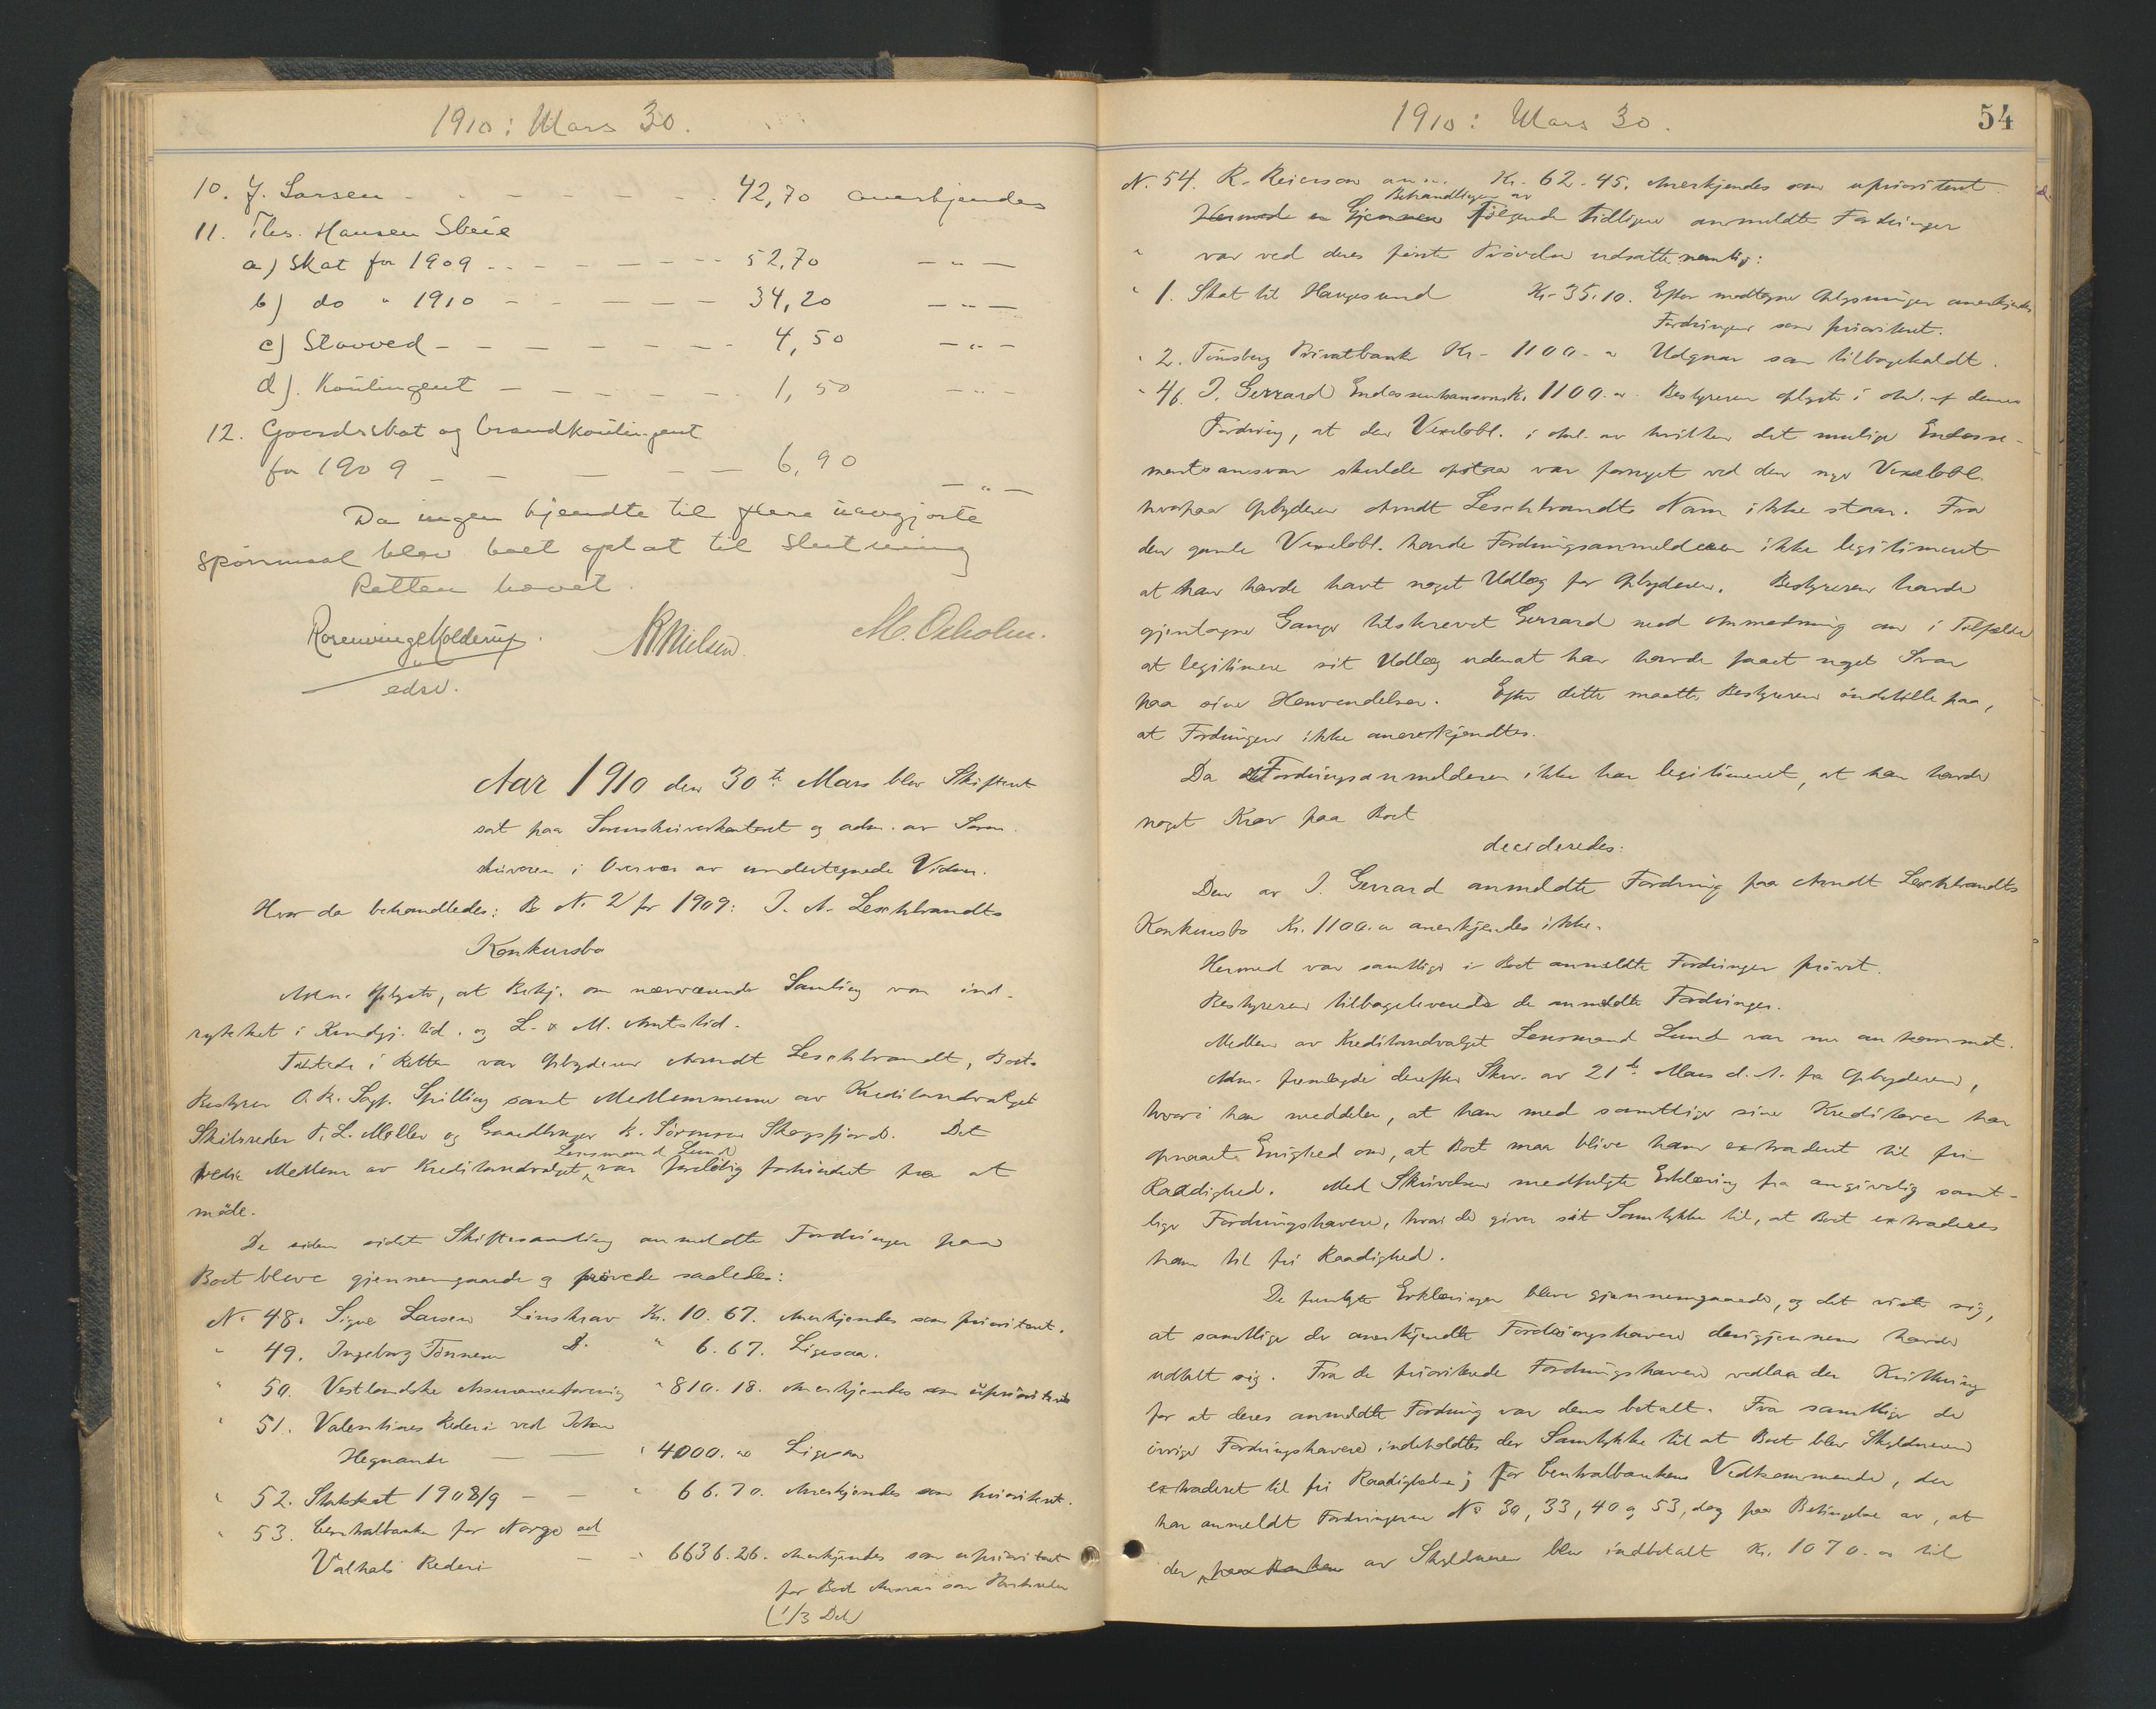 1910: Mars 30.
10. J. Larsen - - - - - 42,70 anerkjendes
11. Ths. Hansen Skeie
a) Skat for 1909 - - - - - 52,70 - " -
b) do " 1910 - - - - - 34,20 - " -
c) Stavved - - - - - - 4,50 - " -
d). Kontingent - - - - - 1,50 - " -
12. Gaardsskat og brandkontingent
for 1909 - - - - - 6,90 - " -
Da ingen kjendte til flere uavgjorte
spörsmaal blev boet optat til slutning
Retten hævet.
Rosenvinge Kolderup. NNielsen. M. Oxholm.
edsv.
Aar 1910 den 30te Mars blev Skifteret
sat paa Sorenskriverkontoret og adm. av Soren-
skriveren i Overvær av undertegnede Vidner.
Hvor da behandledes: B No 2 for 1909: J. A. Leschbrandts
Konkursbo
Adm. oplyste, at Bekj. om nærværende Samling var ind-
rykket i Kundgj. tid. og L. & M. Amtstid.
Tilstede i Retten var Opbyderen Arndt Leschbrandt, Boets
Bestyrer O.R. Sagf. Spilling samt Medlemmerne av Kreditorudvalget
Skibsreder P. L. Møller og Gaardbruger K. Sörensen Skogsfjord. Det
tredie Medlem av Kreditorudvalget Lensmand Lund var foreløbig forhindret fra at
møde.
De siden sidste Skiftesamling anmeldte Fordringer paa
Boet bleve gjennemgaaede og prøvede saaledes:
No 48. Signe Larsen Lönskrav Kr. 10.67. Anerkjendes som prioriteret.
" 49. Ingeborg Tönnesen D. " 6.67. Ligesaa.
" 50. Vestlandske Assuranceforening " 810.18. Anerkjendes som uprioriteret
" 51. Valentines Rederi ved Johan
- - " 4000.00 Ligesaa
" 52. Statsskat 1908/9 - - " 66.70. Anerkjendes som prioriteret.
" 53. Centralbanken for Norge ad
Valhals Rederi - " 6636.26. Anerkjendes som uprioriteret
for Boets Ansvar som Partsreder
(1/3 Del)
1910: Mars 30. 54
N. 54. R. Reierson anm. Kr. 62.45. Anerkjendes som uprioriteret.
Hermed er Gjennem Behandlingen av følgende tidligere anmeldte Fordringer
" var ved deres første Prøvelse udsatte nemlig:
" 1. Skat til Haugesund Kr. 35.10. Efter modtagne Oplysninger anerkjendes
Fordringen som prioriteret.
" 2. Tönsberg Privatbank Kr. 1100.00 Udgaar som tilbagekaldt.
" 46. J. Gerrard Endossementsansvar Kr. 1100.00 Bestyreren oplyste i Anl. af denne
Fordring, at den Vexelobl. i Anl. av hvilken det mulige Endosse-
mentsansvar skulde opstaa var fornyet ved den nye Vexelobl.
hvorpaa Opbyderen Arndt Leschbrandts Navn ikke staar. Fra
den gamle Vexelobl. havde Fordringsanmelderen ikke legitimeret
at han havde havt noget Udlæg for Opbyderen. Bestyreren havde
gjentagne Gange tilskrevet Gerrard med Anmodning om i Tilfælde
at legitimere sit Udlæg uden at han havde faaet noget Svar
paa sine Henvendelser. Efter dette maatte Bestyreren indstille paa,
at Fordringen ikke anerkjendtes.
Da Fordringsanmelderen ikke har legitimeret, at han havde
noget Krav paa Boet
decideredes:
Den av J. Gerrard anmeldte Fordring paa Arndt Leschbrandts
Konkursbo Kr. 1100.00 anerkjendes ikke.
Hermed var samtlige i Boet anmeldte Fordringer prøvet.
Bestyreren tilbageleverede de anmeldte Fordringer.
Medlem av Kreditorudvalget Lensmand Lund var nu ankommet.
Adm. fremlagde derefter Skr. av 21de Mars d. A. fra Opbyderen,
hvori han meddeler, at han med samtlige sine Kreditorer har
opnaaet Enighed om, at Boet maa blive ham extraderet til fri
Raadighed. Med Skrivelsen medfulgte Erklæring fra angivelig samt-
lige Fordringshavere, hvori de giver sit Samtykke til, at Boet extraderes
ham til fri Raadighed.
De fremlagte Erklæringer bleve gjennemgaaede, og det viste sig,
at samtlige de anerkjendte Fordringshavere derigjennem havde
udtalt sig. Fra de prioriterede Fordringshavere vedlaa der Kvittering
for at deres anmeldte Fordring var dem betalt. Fra samtlige de
øvrige Fordringshavere indeholdtes der Samtykke til at Boet blev Skyldneren
extraderet til fri Raadighed; for Centralbankens Vedkommende, der
har anmeldt Fordringerne No 30, 33, 40 og 53, dog paa Betingelse av, at
der paa Banken av Skyldneren blev indbetalt Kr. 1070.00 til